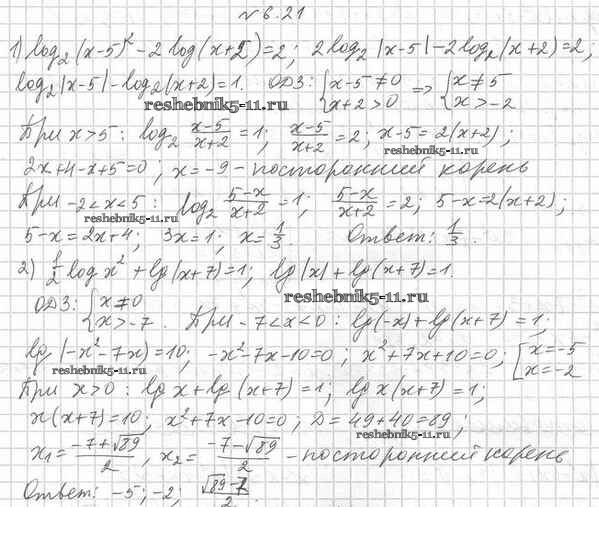 № 6.21
1) log₂(x-5)² - 2log(x+2) = 2; 2log₂|x-5| - 2log₂(x+2) = 2;
log₂|x-5| - log₂(x+2) = 1. ОДЗ: {x-5≠0 x+2>0 => {x≠5 x>-2
reshebnik5-11.ru
При x>5: log₂ (x-5)/(x+2) = 1; (x-5)/(x+2) = 2; x-5 = 2(x+2);
reshebnik5-11.ru
2x+4-x+5=0; x=-9 - посторонний корень
При -2<x<5: log₂ (5-x)/(x+2) = 1; (5-x)/(x+2) = 2; 5-x=2(x+2);
reshebnik5-11.ru
5-x=2x+4; 3x=1; x=1/3. Ответ: 1/3.
2) 1/2 log x² + lg(x+7)=1; lg|x| + lg(x+7)=1.
reshebnik5-11.ru
ОДЗ: {x≠0 x>-7. При -7<x<0: lg(-x)+lg(x+7) = 1;
lg(-x²-7x)=10; -x²-7x-10=0; x²+7x+10=0; [x=-5 x=-2
reshebnik5-11.ru
При x>0: lg x + lg(x+7) = 1; lg x(x+7) = 1;
x(x+7)=10; x²+7x-10=0; D = 49+40=89;
reshebnik5-11.ru
x₁ = (-7+√89)/2, x₂ = (-7-√89)/2 - посторонний корень
Ответ: -5; -2; (√89-7)/2.